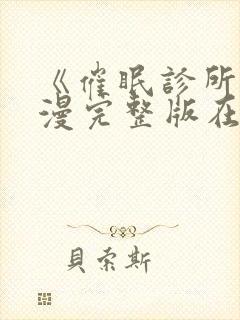 《催眠診所
漫完整版在
貝索斯